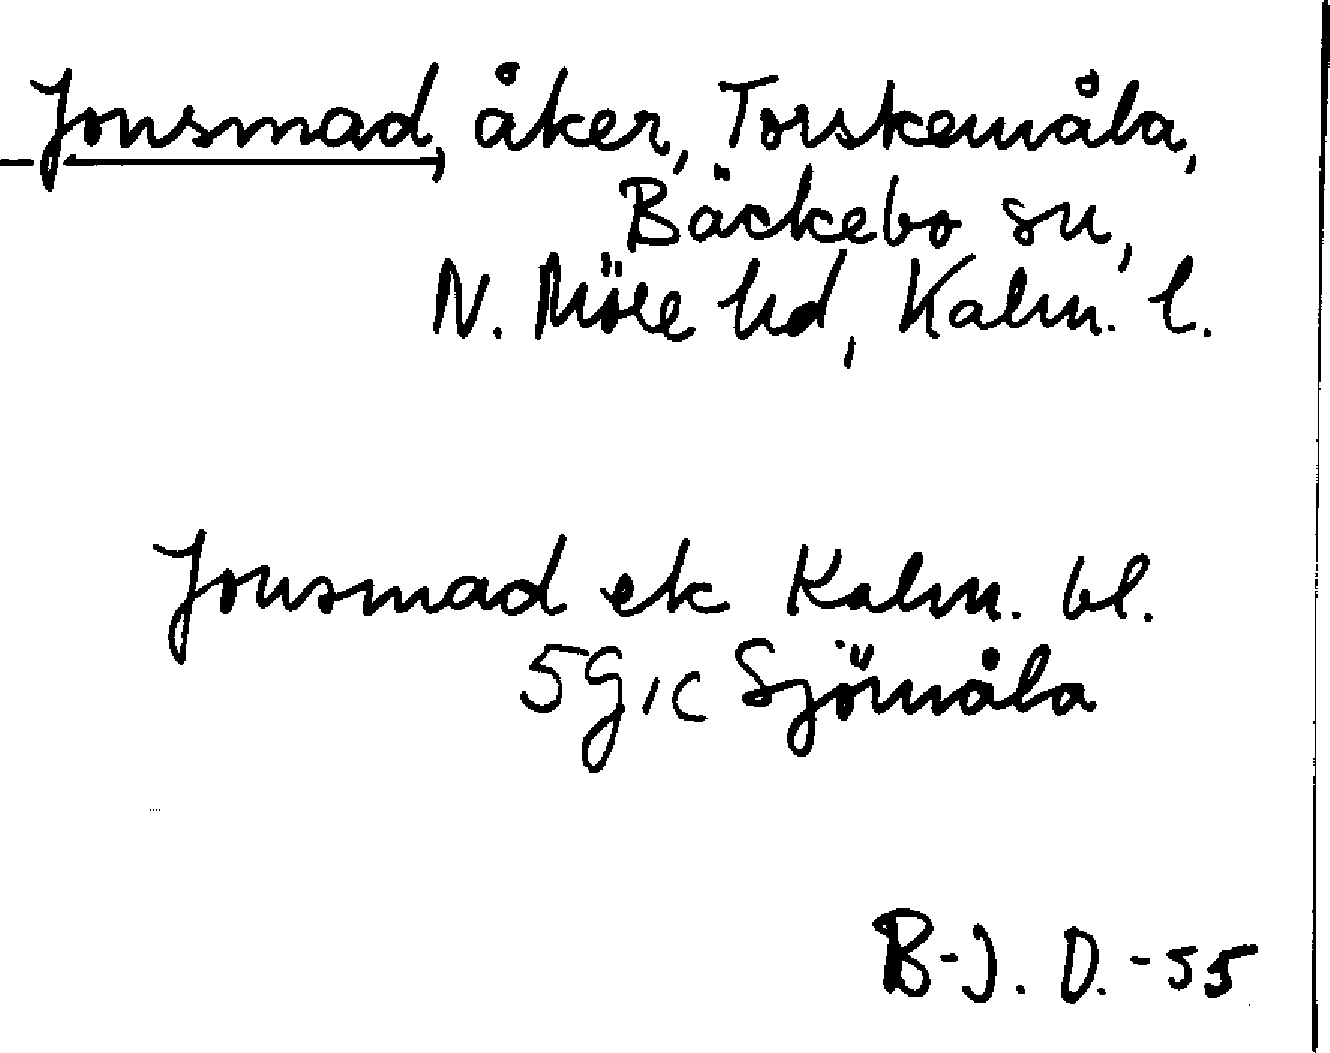 Jonsmad, åker, Torskemåla,
Bäckebo sn,
N. Möre hd, Kalm. l.
Jonsmad ek Kalm. bl.
5g1c Sjömåla
B-J. D. -55